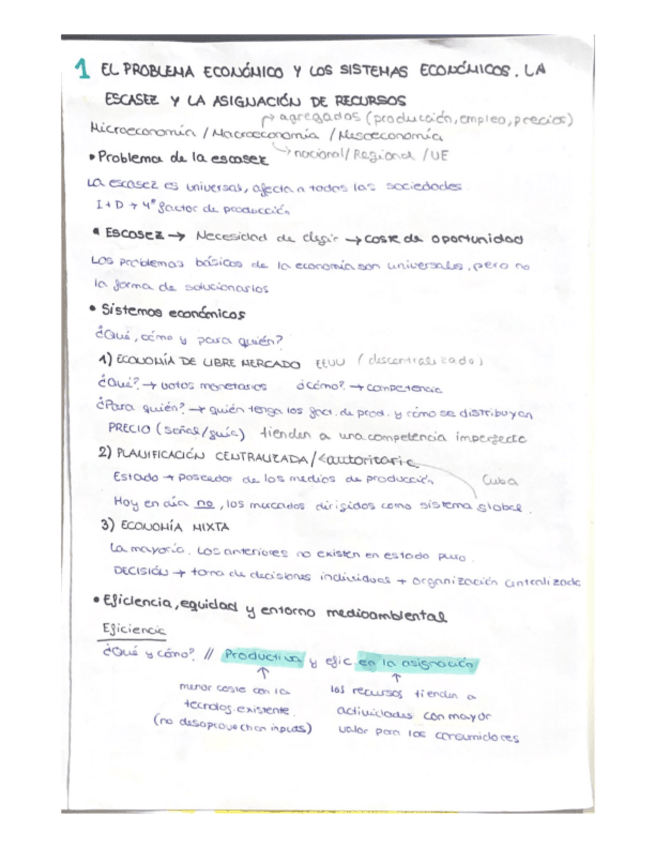 1 EL PROBLEMA ECONÓMICO Y LOS SISTEMAS ECONÓMICOS. LA
ESCASEZ Y LA ASIGNACIÓN DE RECURSOS
→ agregados (producción, empleo, precios)
Microeconomía / Macroeconomía / Mesoeconomía
→ nacional / Regional / UE
• Problema de la escasez
La escasez es universal, afecta a todas las sociedades
I+D → 4º factor de producción
• Escasez → Necesidad de elegir → coste de oportunidad
Los problemas básicos de la economía son universales, pero no
la forma de solucionarlos
• Sistemas económicos
¿Qué, cómo y para quién?
1) ECONOMÍA DE LIBRE MERCADO EEUU (descentralizado)
¿Qué? → votos monetarios ¿cómo? → competencia
¿Para quién? → quién tenga los fact. de prod. y cómo se distribuyan
PRECIO (señal/guía) tienden a una competencia imperfecta
2) PLANIFICACIÓN CENTRALIZADA / autoritaria
Estado → poseedor de los medios de producción Cuba
Hoy en día no, los mercados dirigidos como sistema global.
3) ECONOMÍA MIXTA
La mayoría. Los anteriores no existen en estado puro.
DECISIÓN → toma de decisiones individual + organización centralizada
• Eficiencia, equidad y entorno medioambiental
Eficiencia
¿Qué y cómo? // Productiva y efic. en la asignación
↑ ↑
menor coste con la los recursos tienden a
tecnolog. existente. actividades con mayor
(no desaprovechan inputs) valor para los consumidores